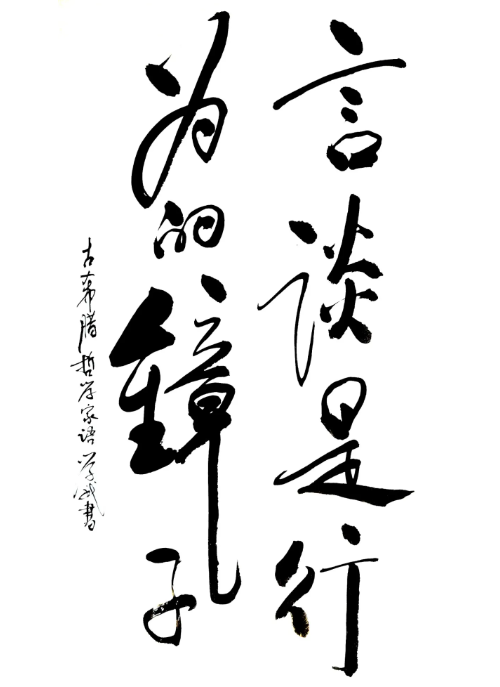 言谈是行
为的鏡子
古希腊哲学家语 学書